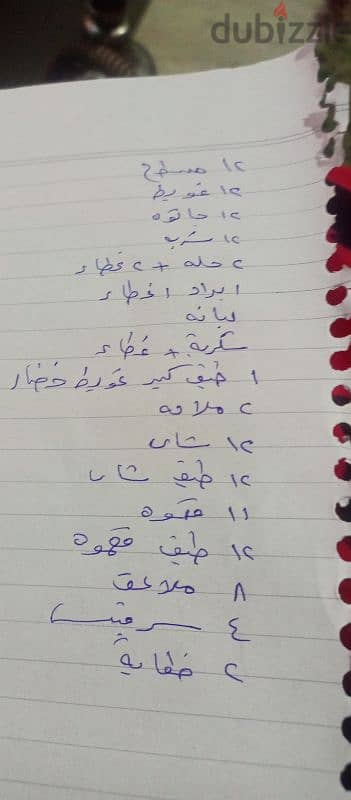 dubizzle
١٢ مسطح
١٢ غويط
١٢ جاتوه
١٢ شرب
٢ حله + ٢ غطاء
١ براد ١ غطاء
لبانه
سكرية + غطاء
١ طبق كبير غويط خضار
٢ ملاحه
١٢ شاى
١٢ طبق شاى
١١ قهوه
١٢ طبق قهوه
٨ ملاعق
٤ سرفيس
٢ طفاية